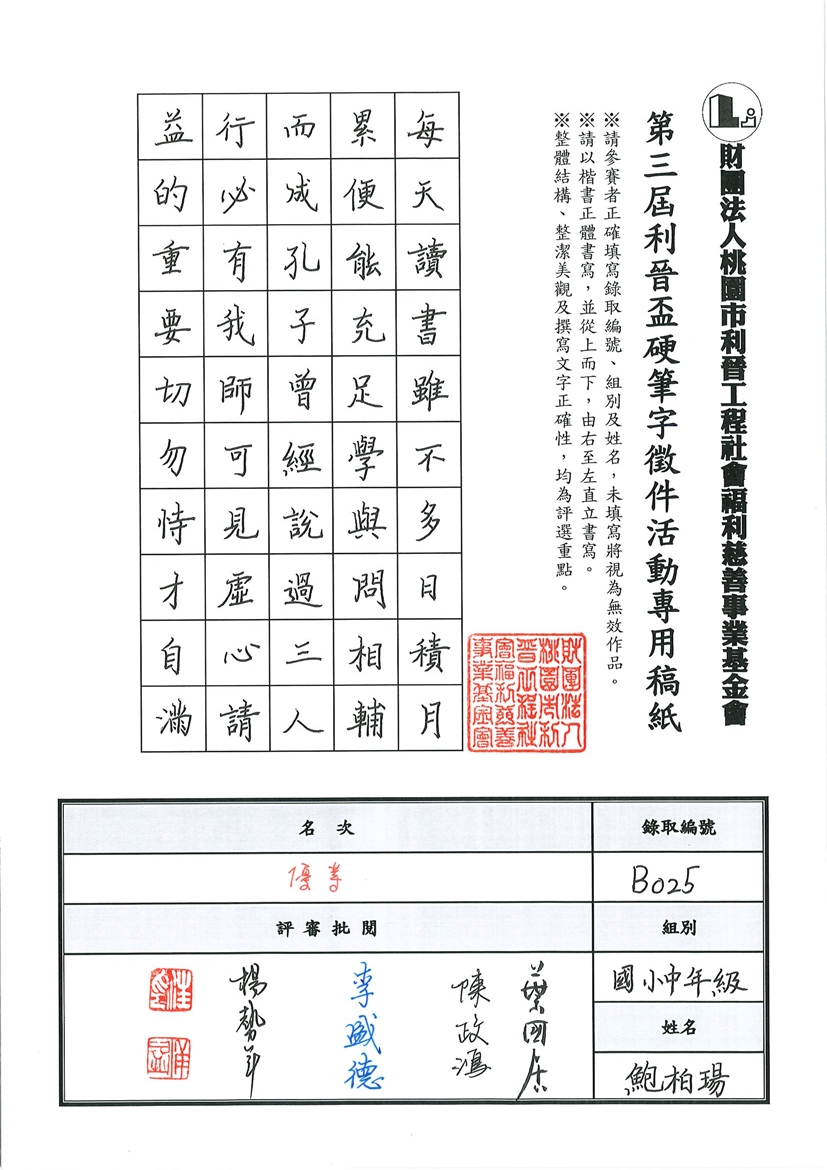 財團法人桃園市利晉工程社會福利慈善事業基金會
第三屆利晉盃硬筆字徵件活動專用稿紙
※請參賽者正確填寫錄取編號、組別及姓名，未填寫將視為無效作品。
※請以楷書正體書寫，並從上而下，由右至左直立書寫。
※整體結構、整潔美觀及撰寫文字正確性，均為評選重點。
每天讀書雖不多日積月
累便能充足學與問相輔
而成孔子曾經說過三人
行必有我師可見虛心請
益的重要切勿恃才自滿
財團法人
桃園市利
晉工程社
會福利慈善
事業基金會
錄取編號
B025
組別
國小中年級
姓名
鮑柏瑒
名次
優等
評審批閱
葉國居
陳政鴻
李盛德